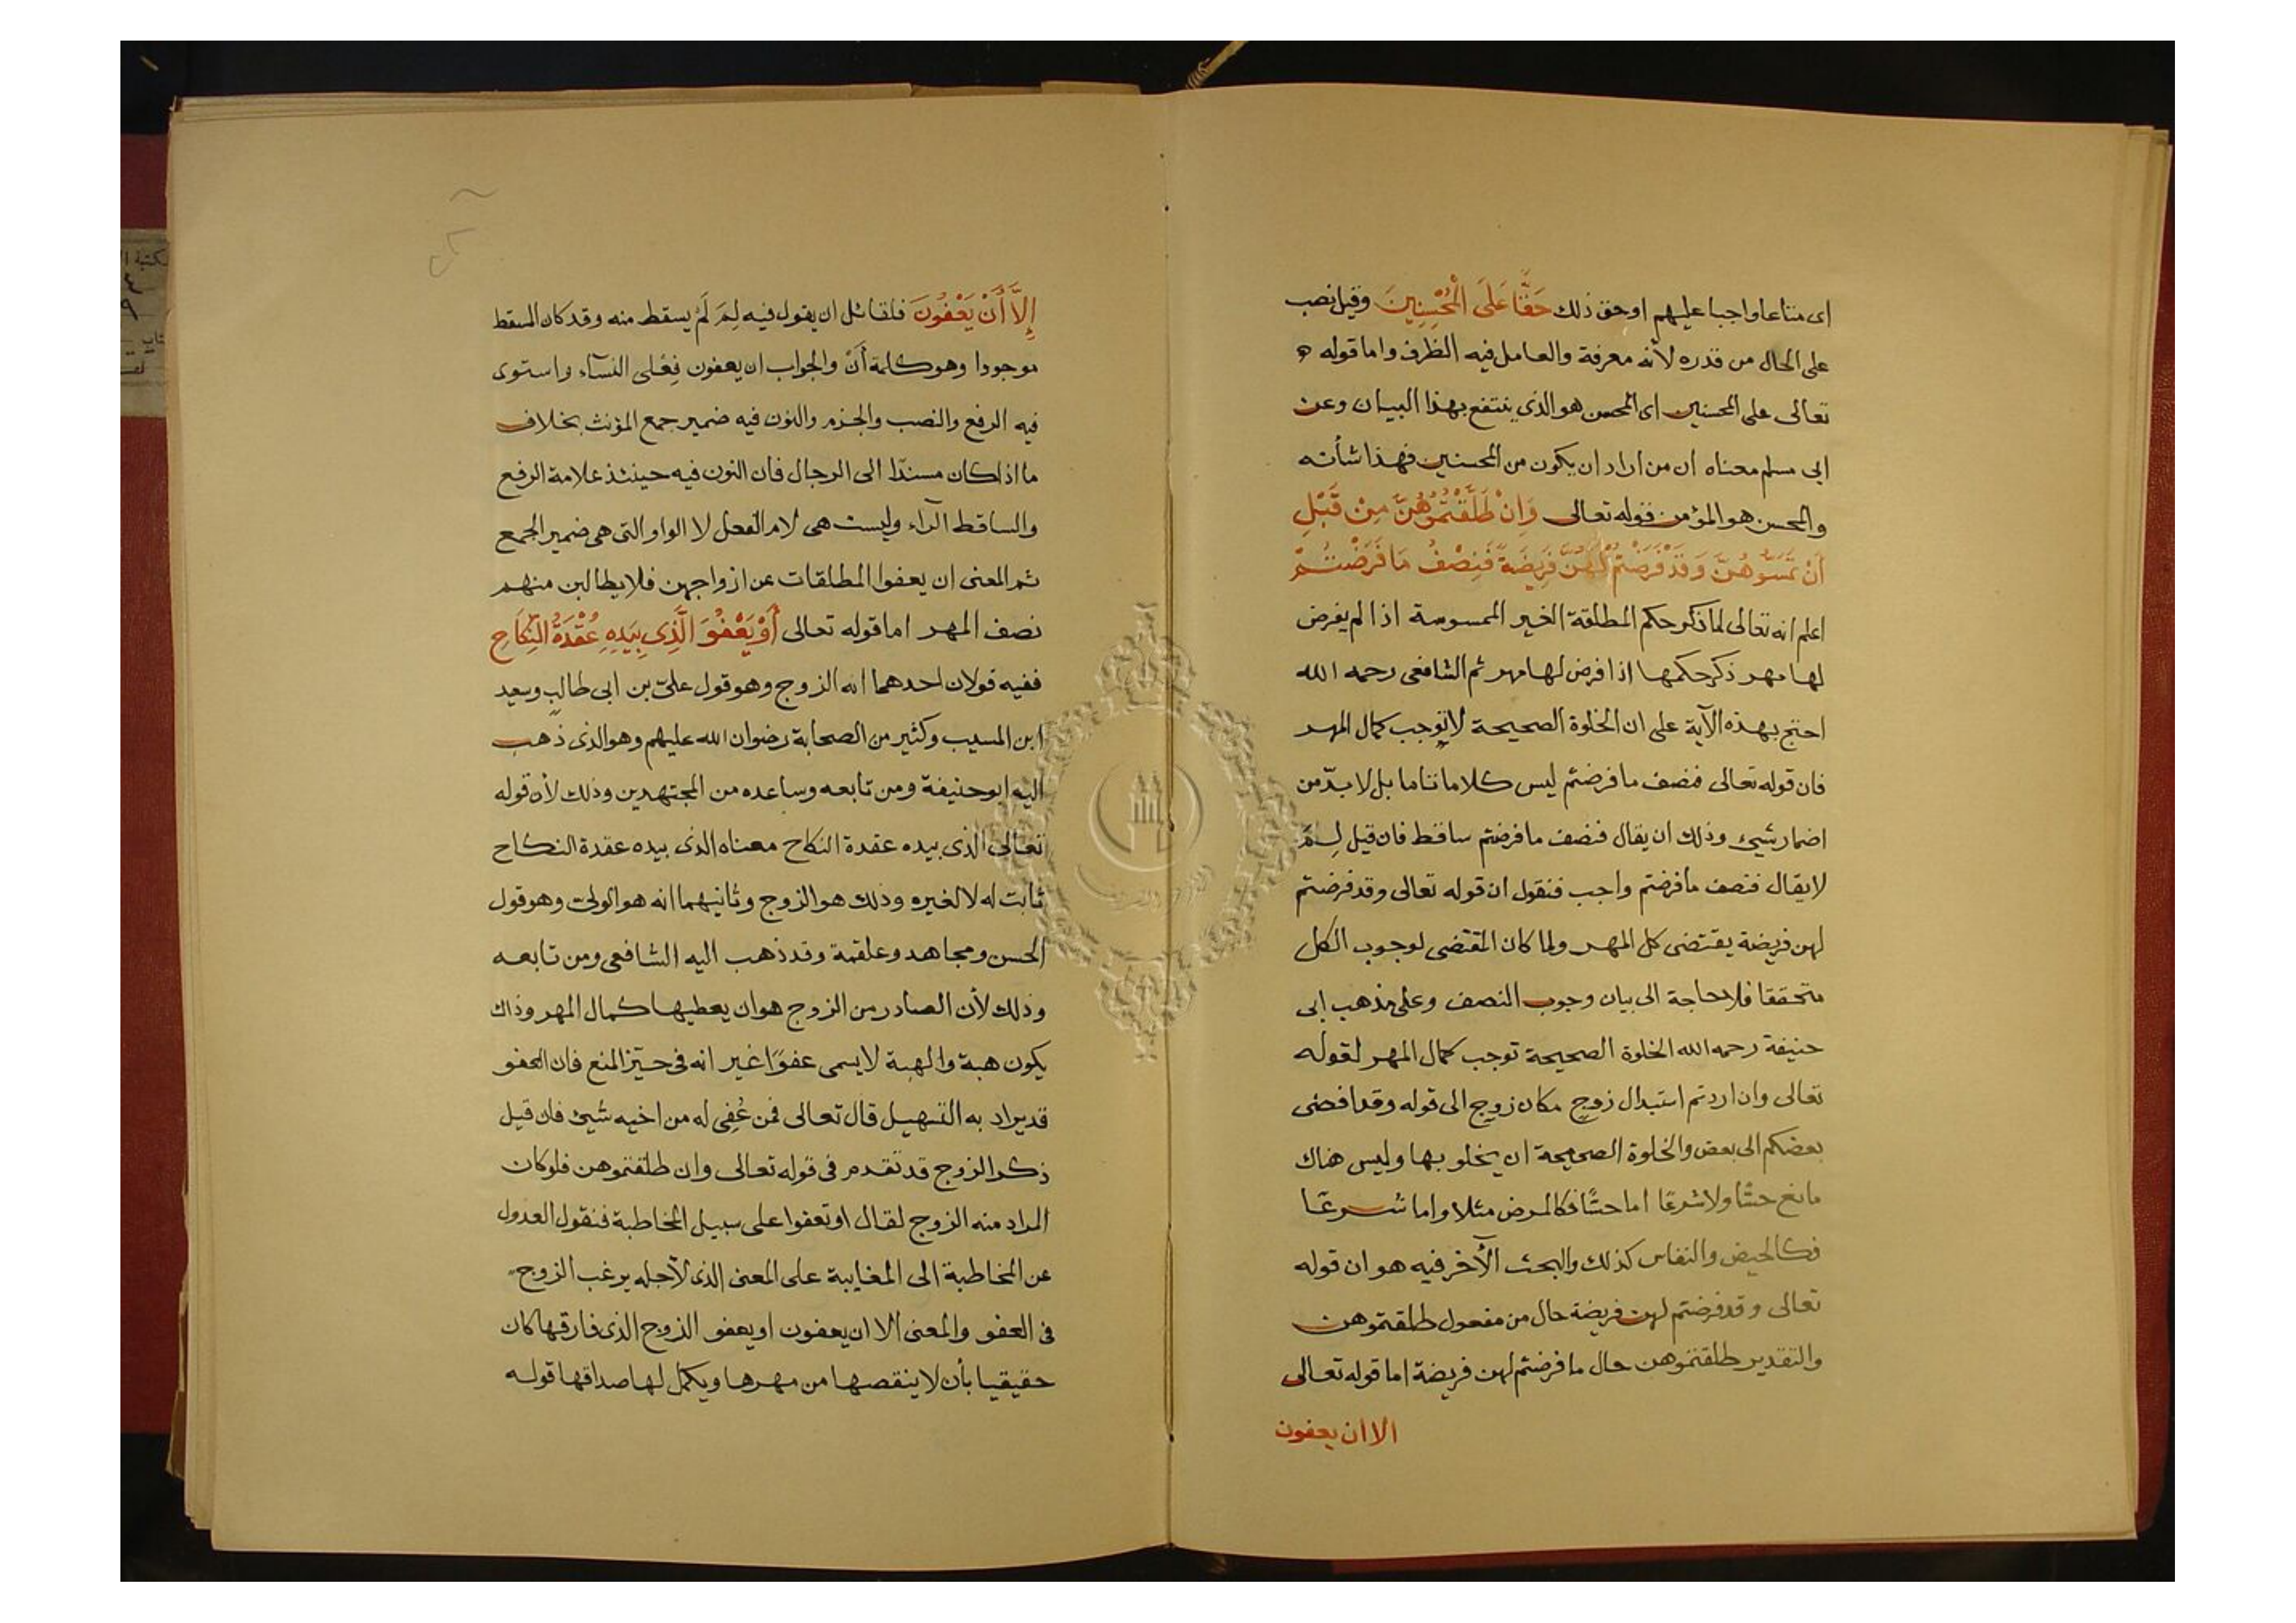 اى متاعا واجبا عليهم او حق ذلك حَقًّا عَلَى الْمُحْسِنِينَ وقيل نصب
على الحال من قدره لأنه معرفة والعامل فيه الظرف واما قوله
تعالى على المحسنين اى المحسن هو الذى ينتفع بهذا البيان وعن
ابى مسلم معناه ان من اراد ان يكون من المحسنين فهذا شأنه
والمحسن هو المؤمن قوله تعالى وَاِنْ طَلَّقْتُمُوهُنَّ مِنْ قَبْلِ
أَنْ تَمَسُّوهُنَّ وَقَدْ فَرَضْتُمْ لَهُنَّ فَرِيضَةً فَنِصْفُ مَا فَرَضْتُمْ
اعلم انه تعالى لما ذكر حكم المطلقة الغير الممسوسة اذا لم يفرض
لها مهر ذكر حكمها اذا فرض لها مهر ثم الشافعى رحمه الله
احتج بهذه الآية على ان الخلوة الصحيحة لا توجب كمال المهر
فان قوله تعالى فنصف ما فرضتم ليس كلاما تاما بل لا بدّ من
اضمار شيئ وذلك ان يقال فنصف ما فرضتم ساقط فان قيل لِمَ
لا يقال فنصف ما فرضتم واجب فنقول ان قوله تعالى وقد فرضتم
لهن فريضة يقتضى كل المهر ولما كان المقتضى لوجوب الكل
متحققا فلا حاجة الى بيان وجوب النصف وعلى مذهب ابى
حنيفة رحمه الله الخلوة الصحيحة توجب كمال المهر لقوله
تعالى وان اردتم استبدال زوج مكان زوج الى قوله وقد افضى
بعضكم الى بعض والخلوة الصحيحة ان يخلو بها وليس هناك
مانع حسًّا ولا شرعًا اما حسًّا فكالمرض مثلا واما شرعًا
فكالحيض والنفاس كذلك والبحث الآخر فيه هو ان قوله
تعالى وقد فرضتم لهن فريضة حال من مفعول طلقتموهن
والتقدير طلقتموهن حال ما فرضتم لهن فريضة اما قوله تعالى
الا ان يعفون
إِلَّا أَنْ يَعْفُونَ فلقائل ان يقول فيه لِمَ لَمْ يسقط منه وقد كان المسقط
موجودا وهو كلمة أنْ والجواب ان يعفون فِعْلى النسآء واستوى
فيه الرفع والنصب والجزم والنون فيه ضمير جمع المؤنث بخلاف
ما اذا كان مسندًا الى الرجال فان النون فيه حينئذ علامة الرفع
والساقط الرآء وليست هى لام الفعل لا الواو التى هى ضمير الجمع
ثم المعنى ان يعفوا المطلقات عن ازواجهن فلا يطالبن منهم
نصف المهر اما قوله تعالى أَوْ يَعْفُوَ الَّذِى بِيَدِهِ عُقْدَةُ النِّكَاحِ
ففيه قولان احدهما انه الزوج وهو قول علىّ بن ابى طالب وسعيد
ابن المسيب وكثير من الصحابة رضوان الله عليهم وهو الذى ذهب
اليه ابو حنيفة ومن تابعه وساعده من المجتهدين وذلك لأن قوله
تعالى الذى بيده عقدة النكاح معناه الذى بيده عقدة النكاح
ثابت له لا لغيره وذلك هو الزوج وثانيهما انه هو الولىّ وهو قول
الحسن ومجاهد وعلقمة وقد ذهب اليه الشافعى ومن تابعه
وذلك لأن الصادر من الزوج هو ان يعطيها كمال المهر وذاك
يكون هبة والهبة لا يسمى عفوًا غير انه فى حيّز المنع فان العفو
قد يراد به التسهيل قال تعالى فمن عُفِى له من اخيه شيئ فان قيل
ذكر الزوج قد تقدم فى قوله تعالى وان طلقتموهن فلو كان
المراد منه الزوج لقال او تعفوا على سبيل المخاطبة فنقول العدول
عن المخاطبة الى المغايبة على المعنى الذى لأجله يرغب الزوج
فى العفو والمعنى الا ان يعفون او يعفو الزوج الذى فارقها كان
حقيقيا بأن لا ينقصها من مهرها ويكمل لها صداقها قوله